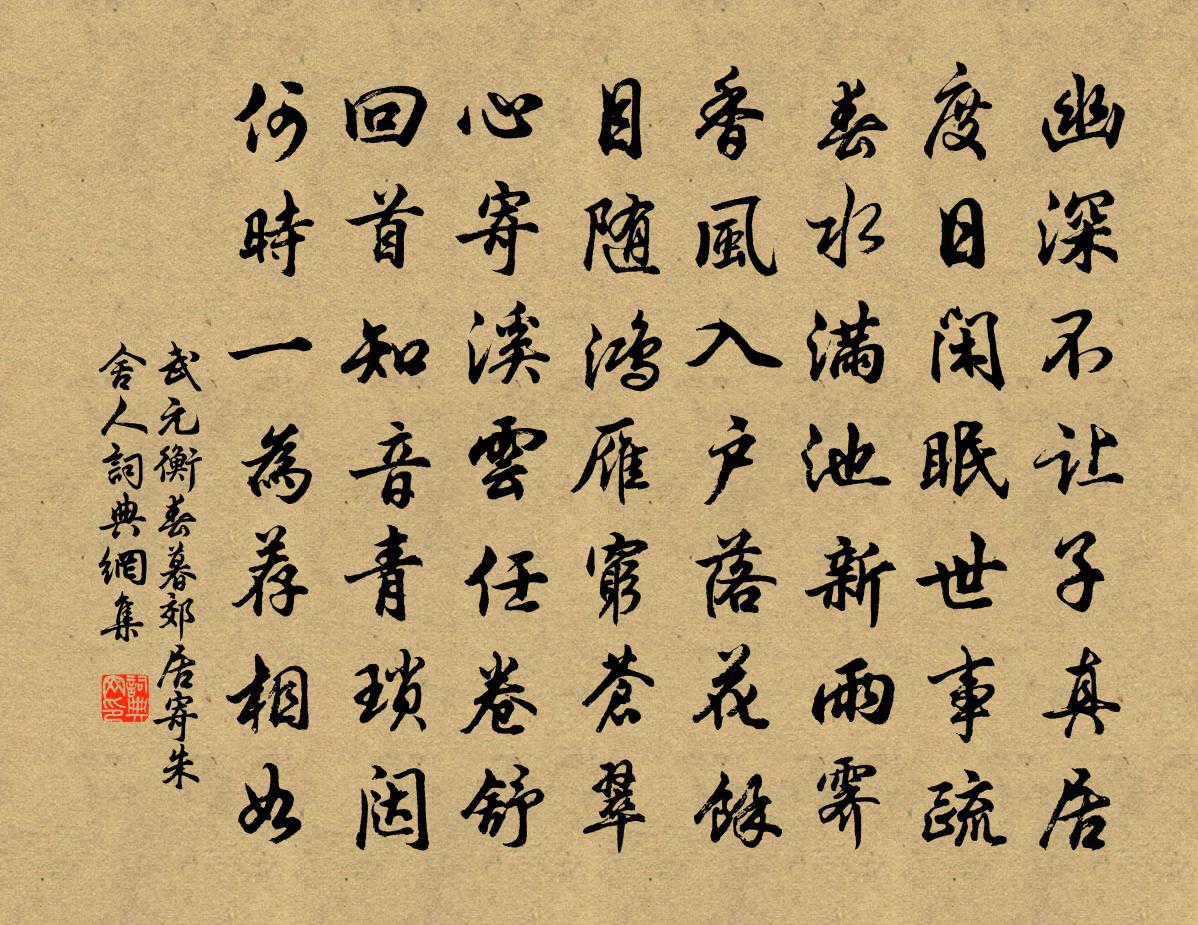 幽深不让子真居
度日闲眠世事疏
春水满池新雨霁
香風入户落花餘
目随鸿雁窮蒼翠
心寄溪雲任卷舒
回首知音青琐闼
何時一為荐相如
武元衡春暮郊居寄朱
舍人詞典網集
詞典
网印